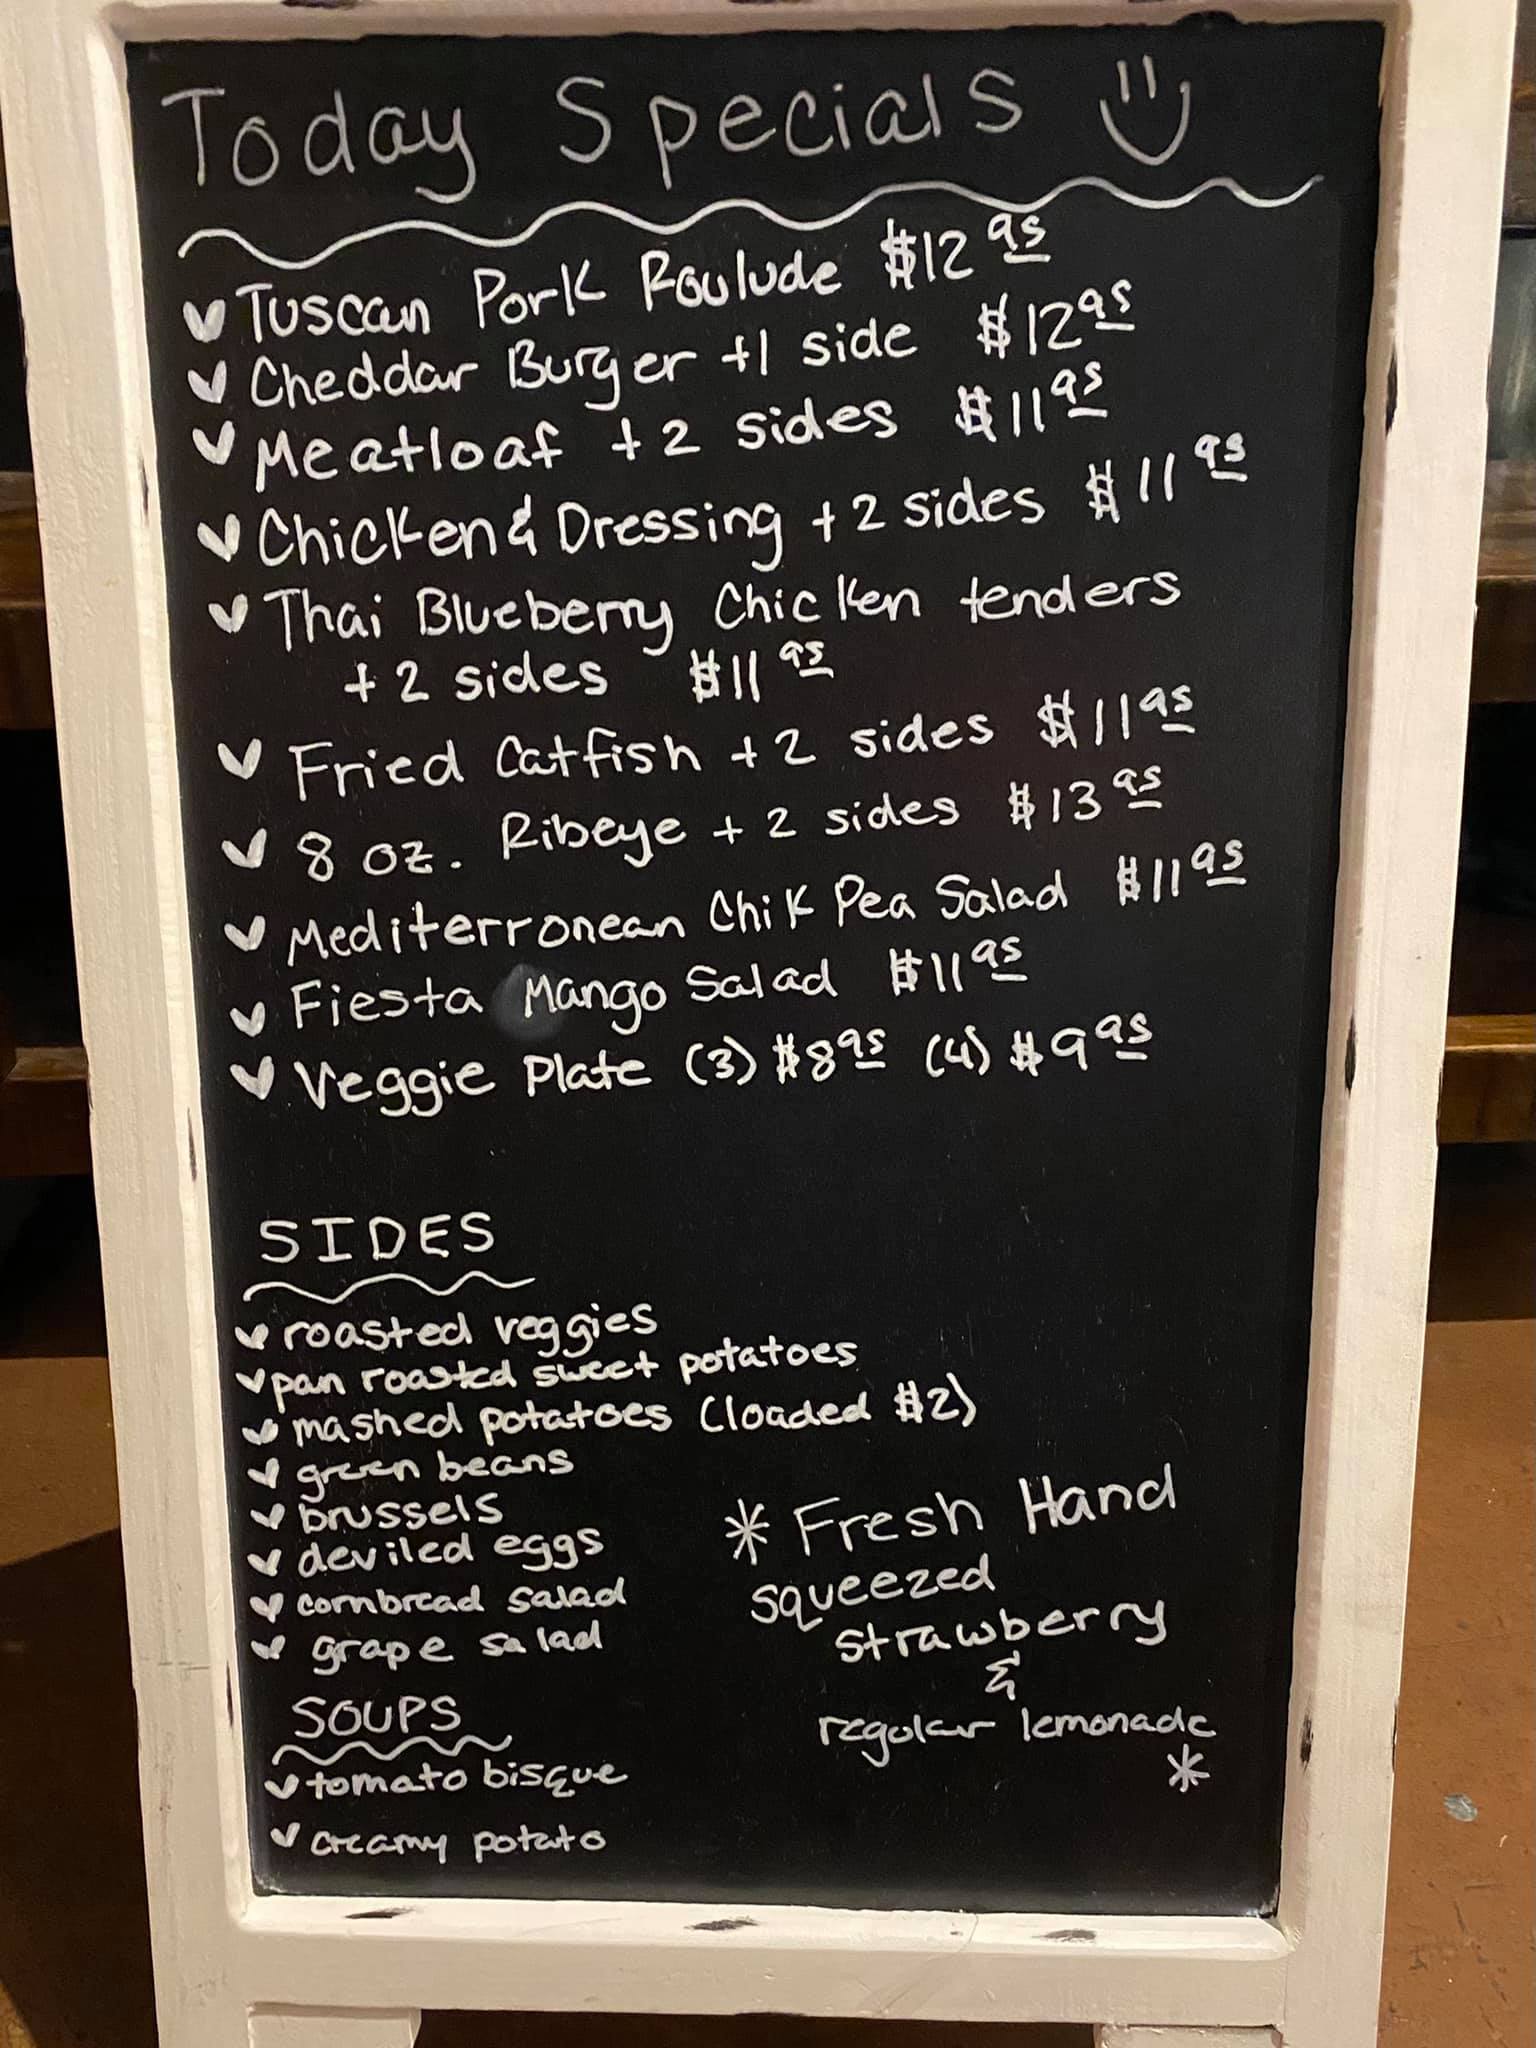 Today Specials
Tuscan Pork Roulude $12 95
Cheddar Burger +1 side $12 95
Meatloaf +2 sides $11 95
Chicken & Dressing +2 sides $11 95
Thai Blueberry Chicken tenders
+2 sides $11 95
Fried Catfish +2 sides $11 95
8 oz. Ribeye +2 sides $13 95
Mediterronean Chik Pea Salad $11 95
Fiesta Mango Salad $11 95
Veggie Plate (3) $8 95 (4) $9 95
SIDES
roasted veggies
pan roasted sweet potatoes
mashed potatoes (loaded $2)
green beans
brussels
deviled eggs
cornbread salad
grape salad
SOUPS
tomato bisque
creamy potato
* Fresh Hand
squeezed
strawberry
&
regular lemonade
*